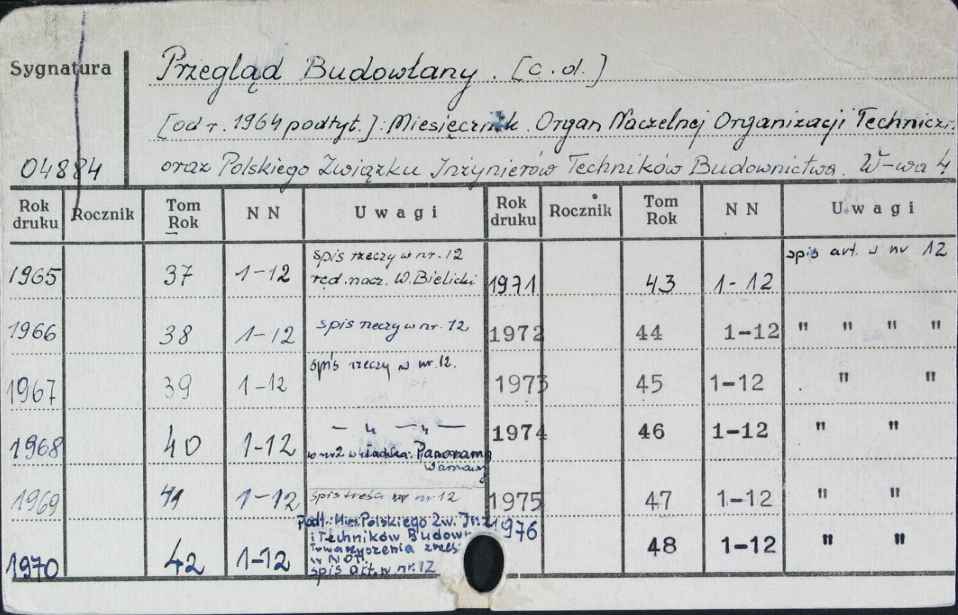 Sygnatura
04884
Przegląd Budowlany. [c.d.]
[od r. 1964 podtyt.]: Miesięcznik. Organ Naczelnej Organizacji Techniczn.
oraz Polskiego Związku Inżynierów Techników Budownictwa. W-wa 4
Rok druku Rocznik Tom Rok NN Uwagi Rok druku Rocznik Tom Rok NN Uwagi
1965 37 1-12 spis rzeczy w nr. 12
red. nacz. W. Bielicki
1971 43 1-12 spis art. w nr 12
1966 38 1-12 spis rzeczy w nr. 12
1972 44 1-12 " " " "
1967 39 1-12 spis rzeczy w nr. 12.
1973 45 1-12 " "
1968 40 1-12 — " — " —
w nr 2 wkładka: Panorama
Warszawy
1974 46 1-12 " "
1969 41 1-12 spis treści w nr 12
1975 47 1-12 " "
1970 42 1-12 Podt.: Mies. Polskiego Zw. Inż.
i Techników Budown.
Towarzyszenia
w NOT
spis art. w nr. 12
1976 48 1-12 " "